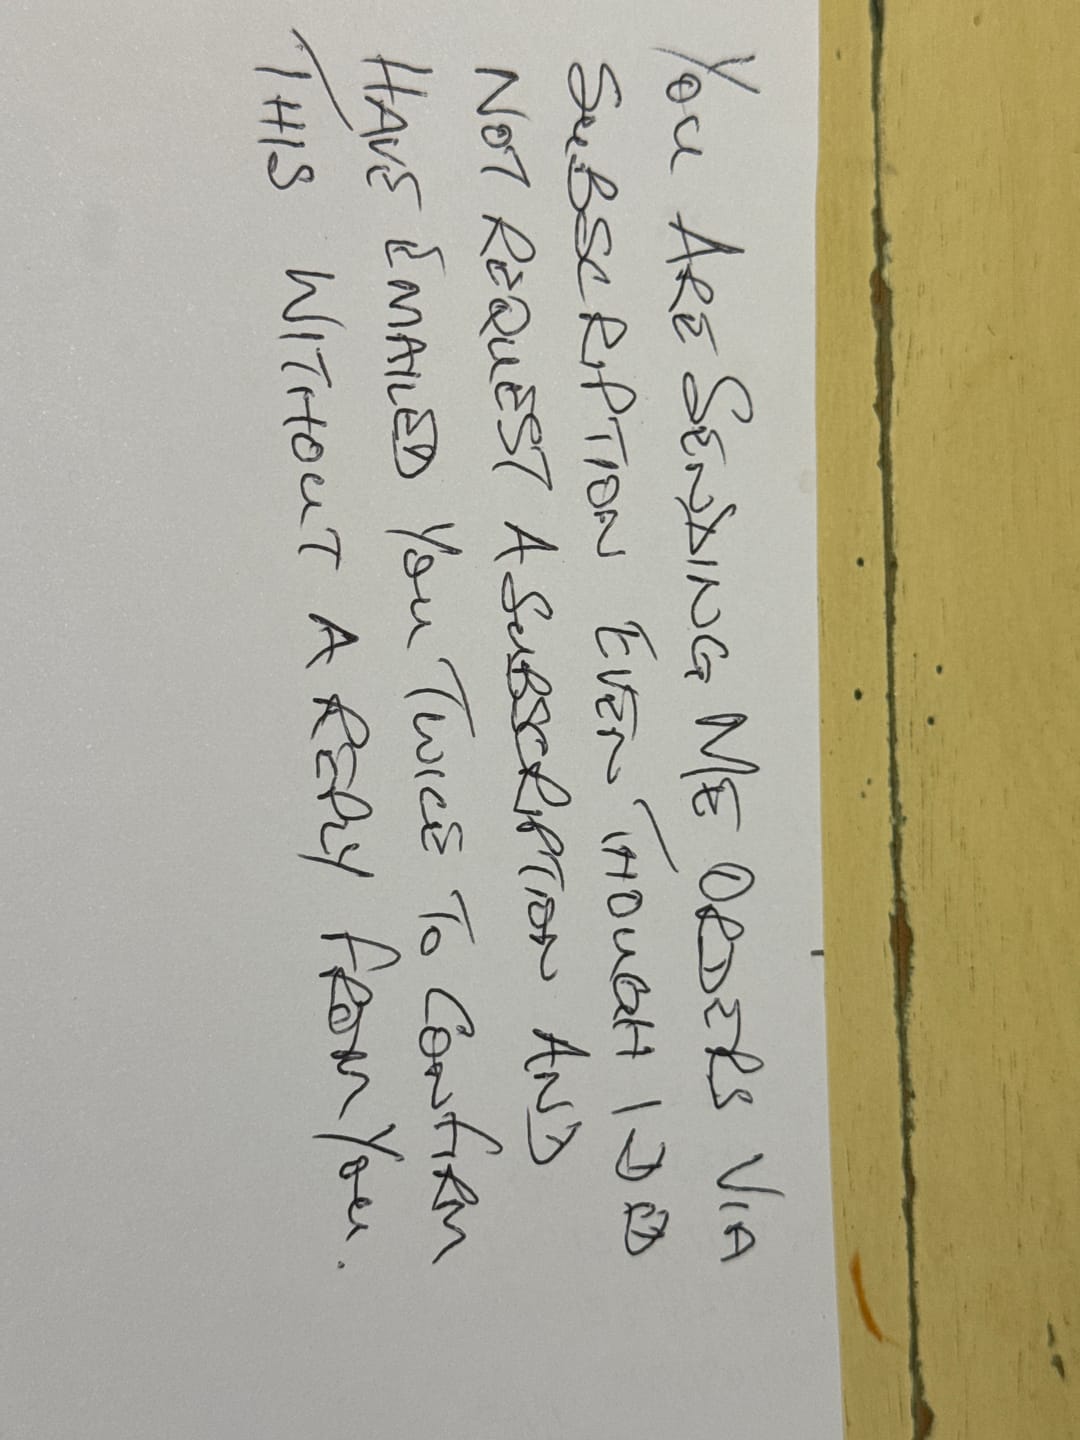 YOU ARE SENDING ME ORDERS VIA
SUBSCRIPTION EVEN THOUGH I DID
NOT REQUEST A SUBSCRIPTION AND
HAVE EMAILED YOU TWICE TO CONFIRM
THIS WITHOUT A REPLY FROM YOU.